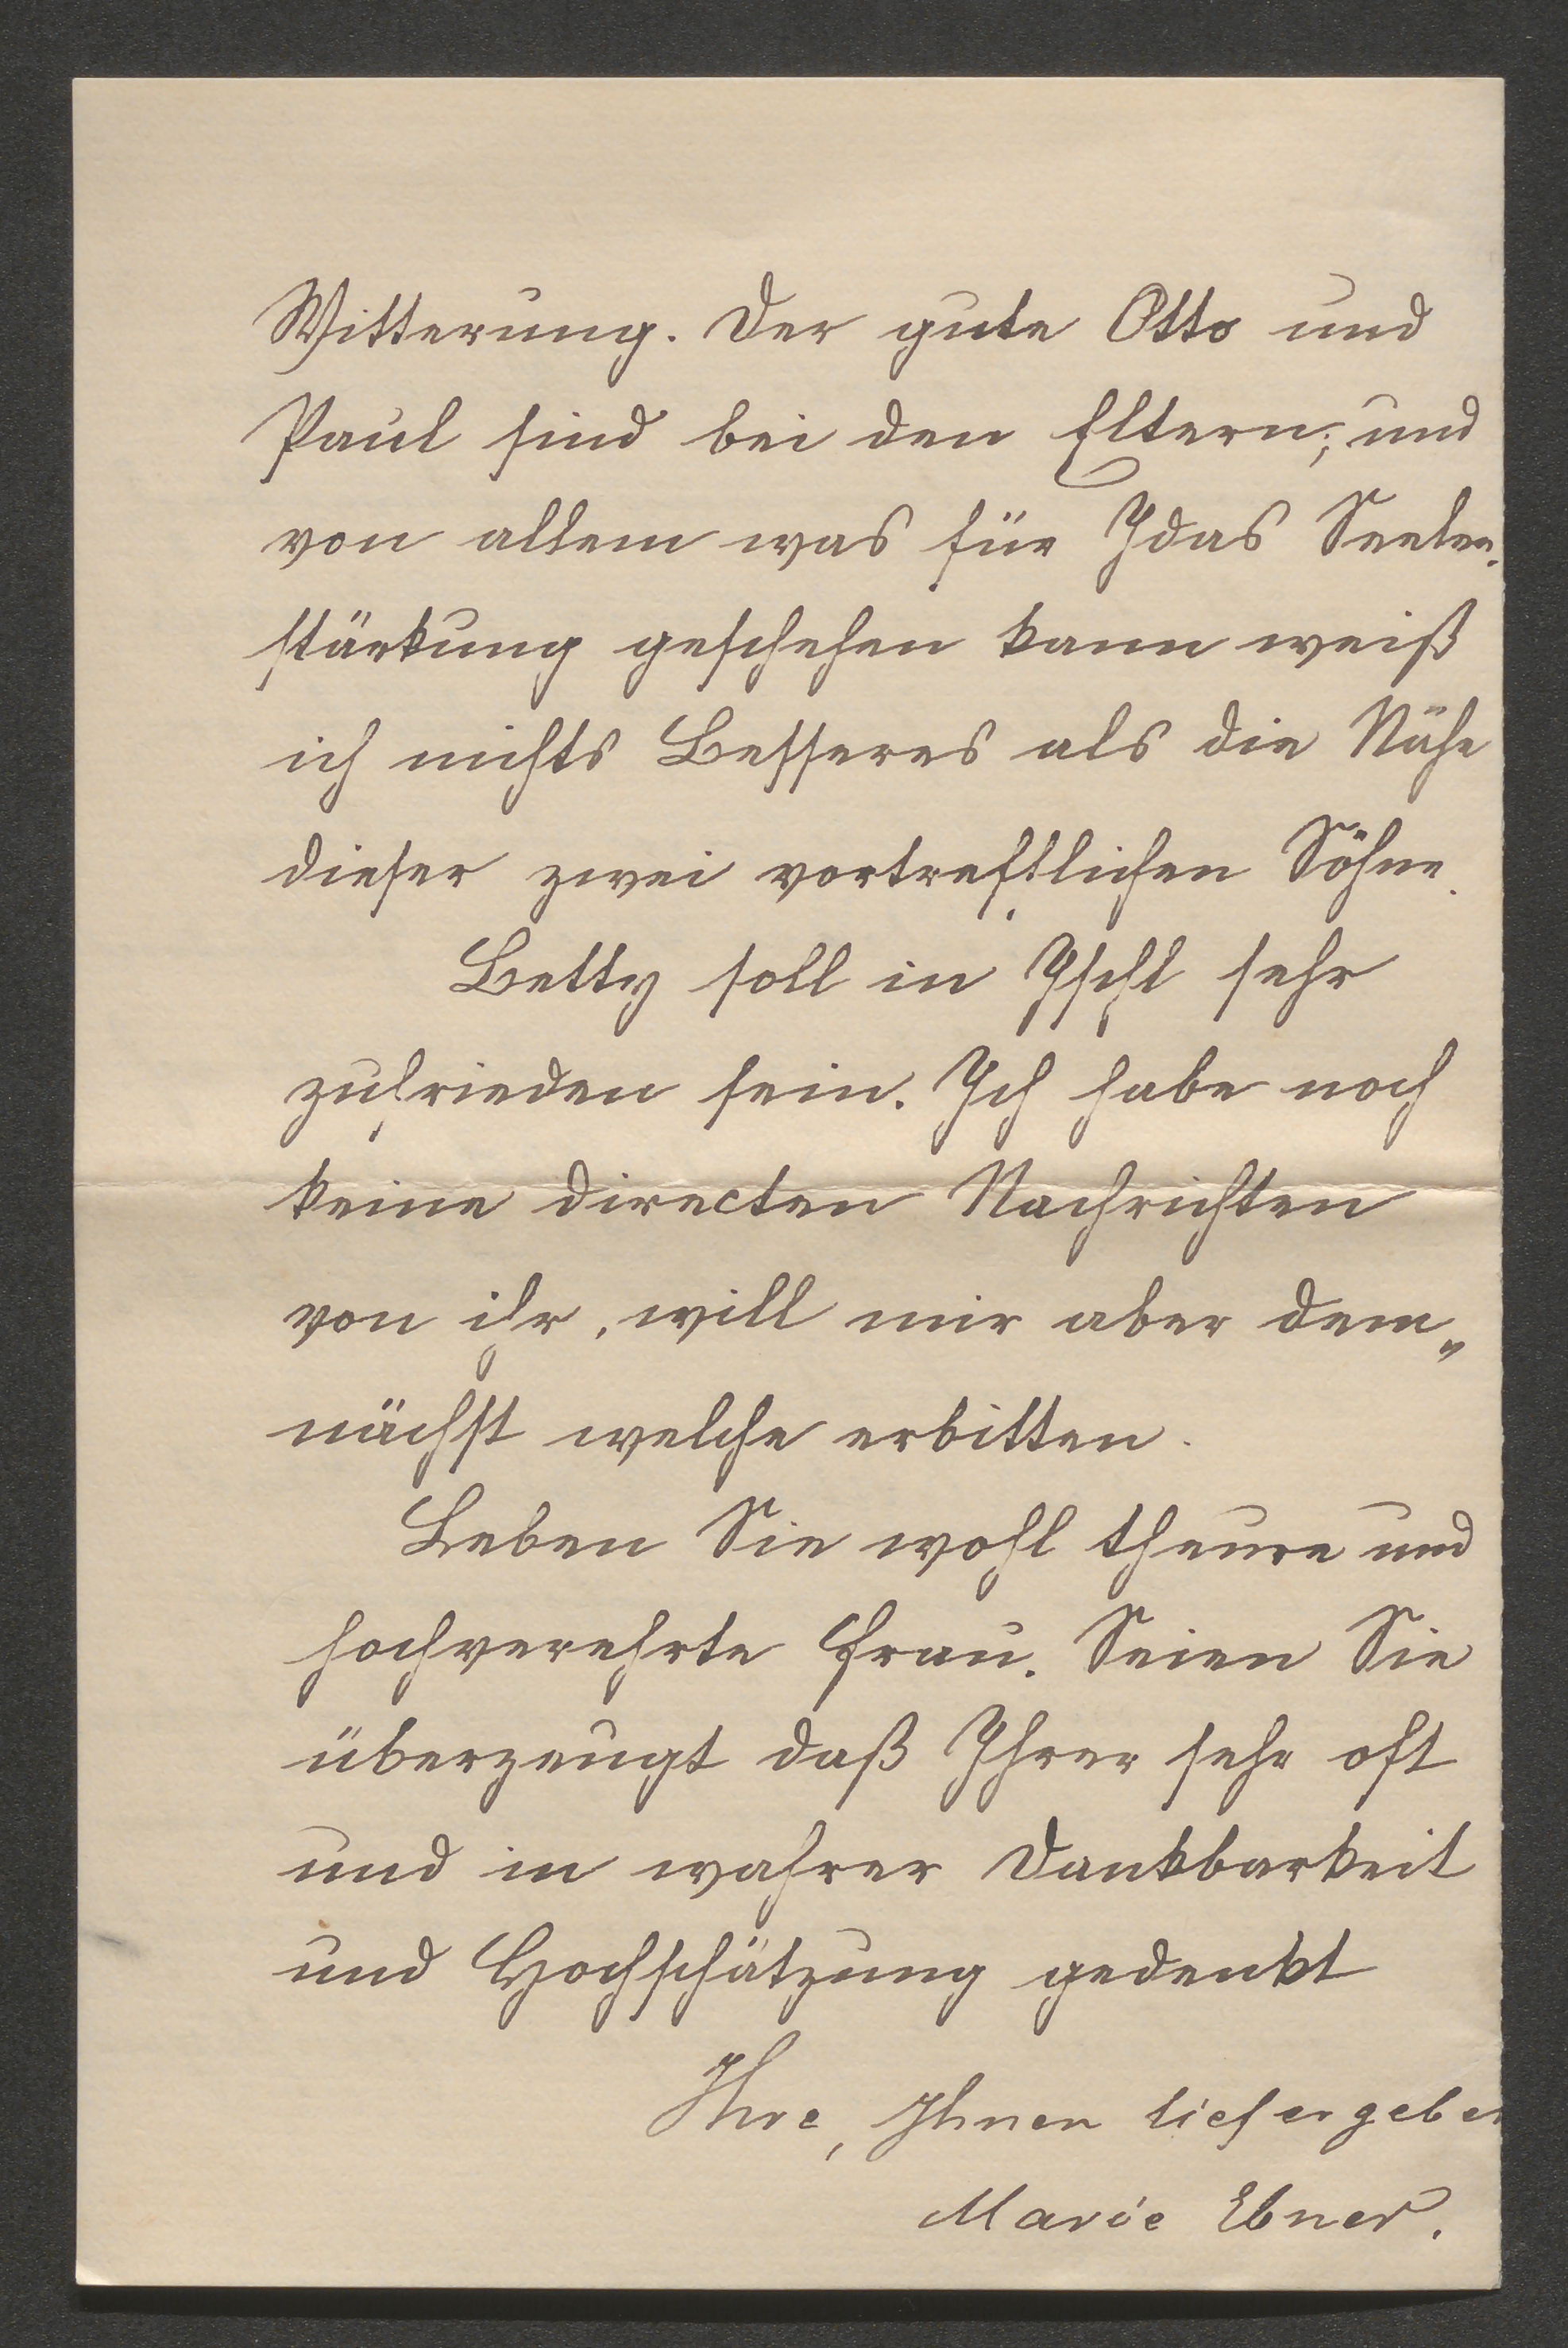 Witterung. Der gute Otto und
Paul sind bei den Eltern; und
von allem was für Idas Seelen-
stärkung geschehen kann weiß
ich nichts Besseres als die Nähe
dieser zwei vortrefflichen Söhne.
Betty soll in Ischl sehr
zufrieden sein. Ich habe noch
keine directen Nachrichten
von ihr, will mir aber dem„
nächst welche erbitten.
Leben Sie wohl theure und
hochverehrte Frau. Seien Sie
überzeugt daß Ihrer sehr oft
und in wahrer Dankbarkeit
und Hochschätzung gedenkt
Ihre, Ihnen tiefergeben
Marie Ebner.